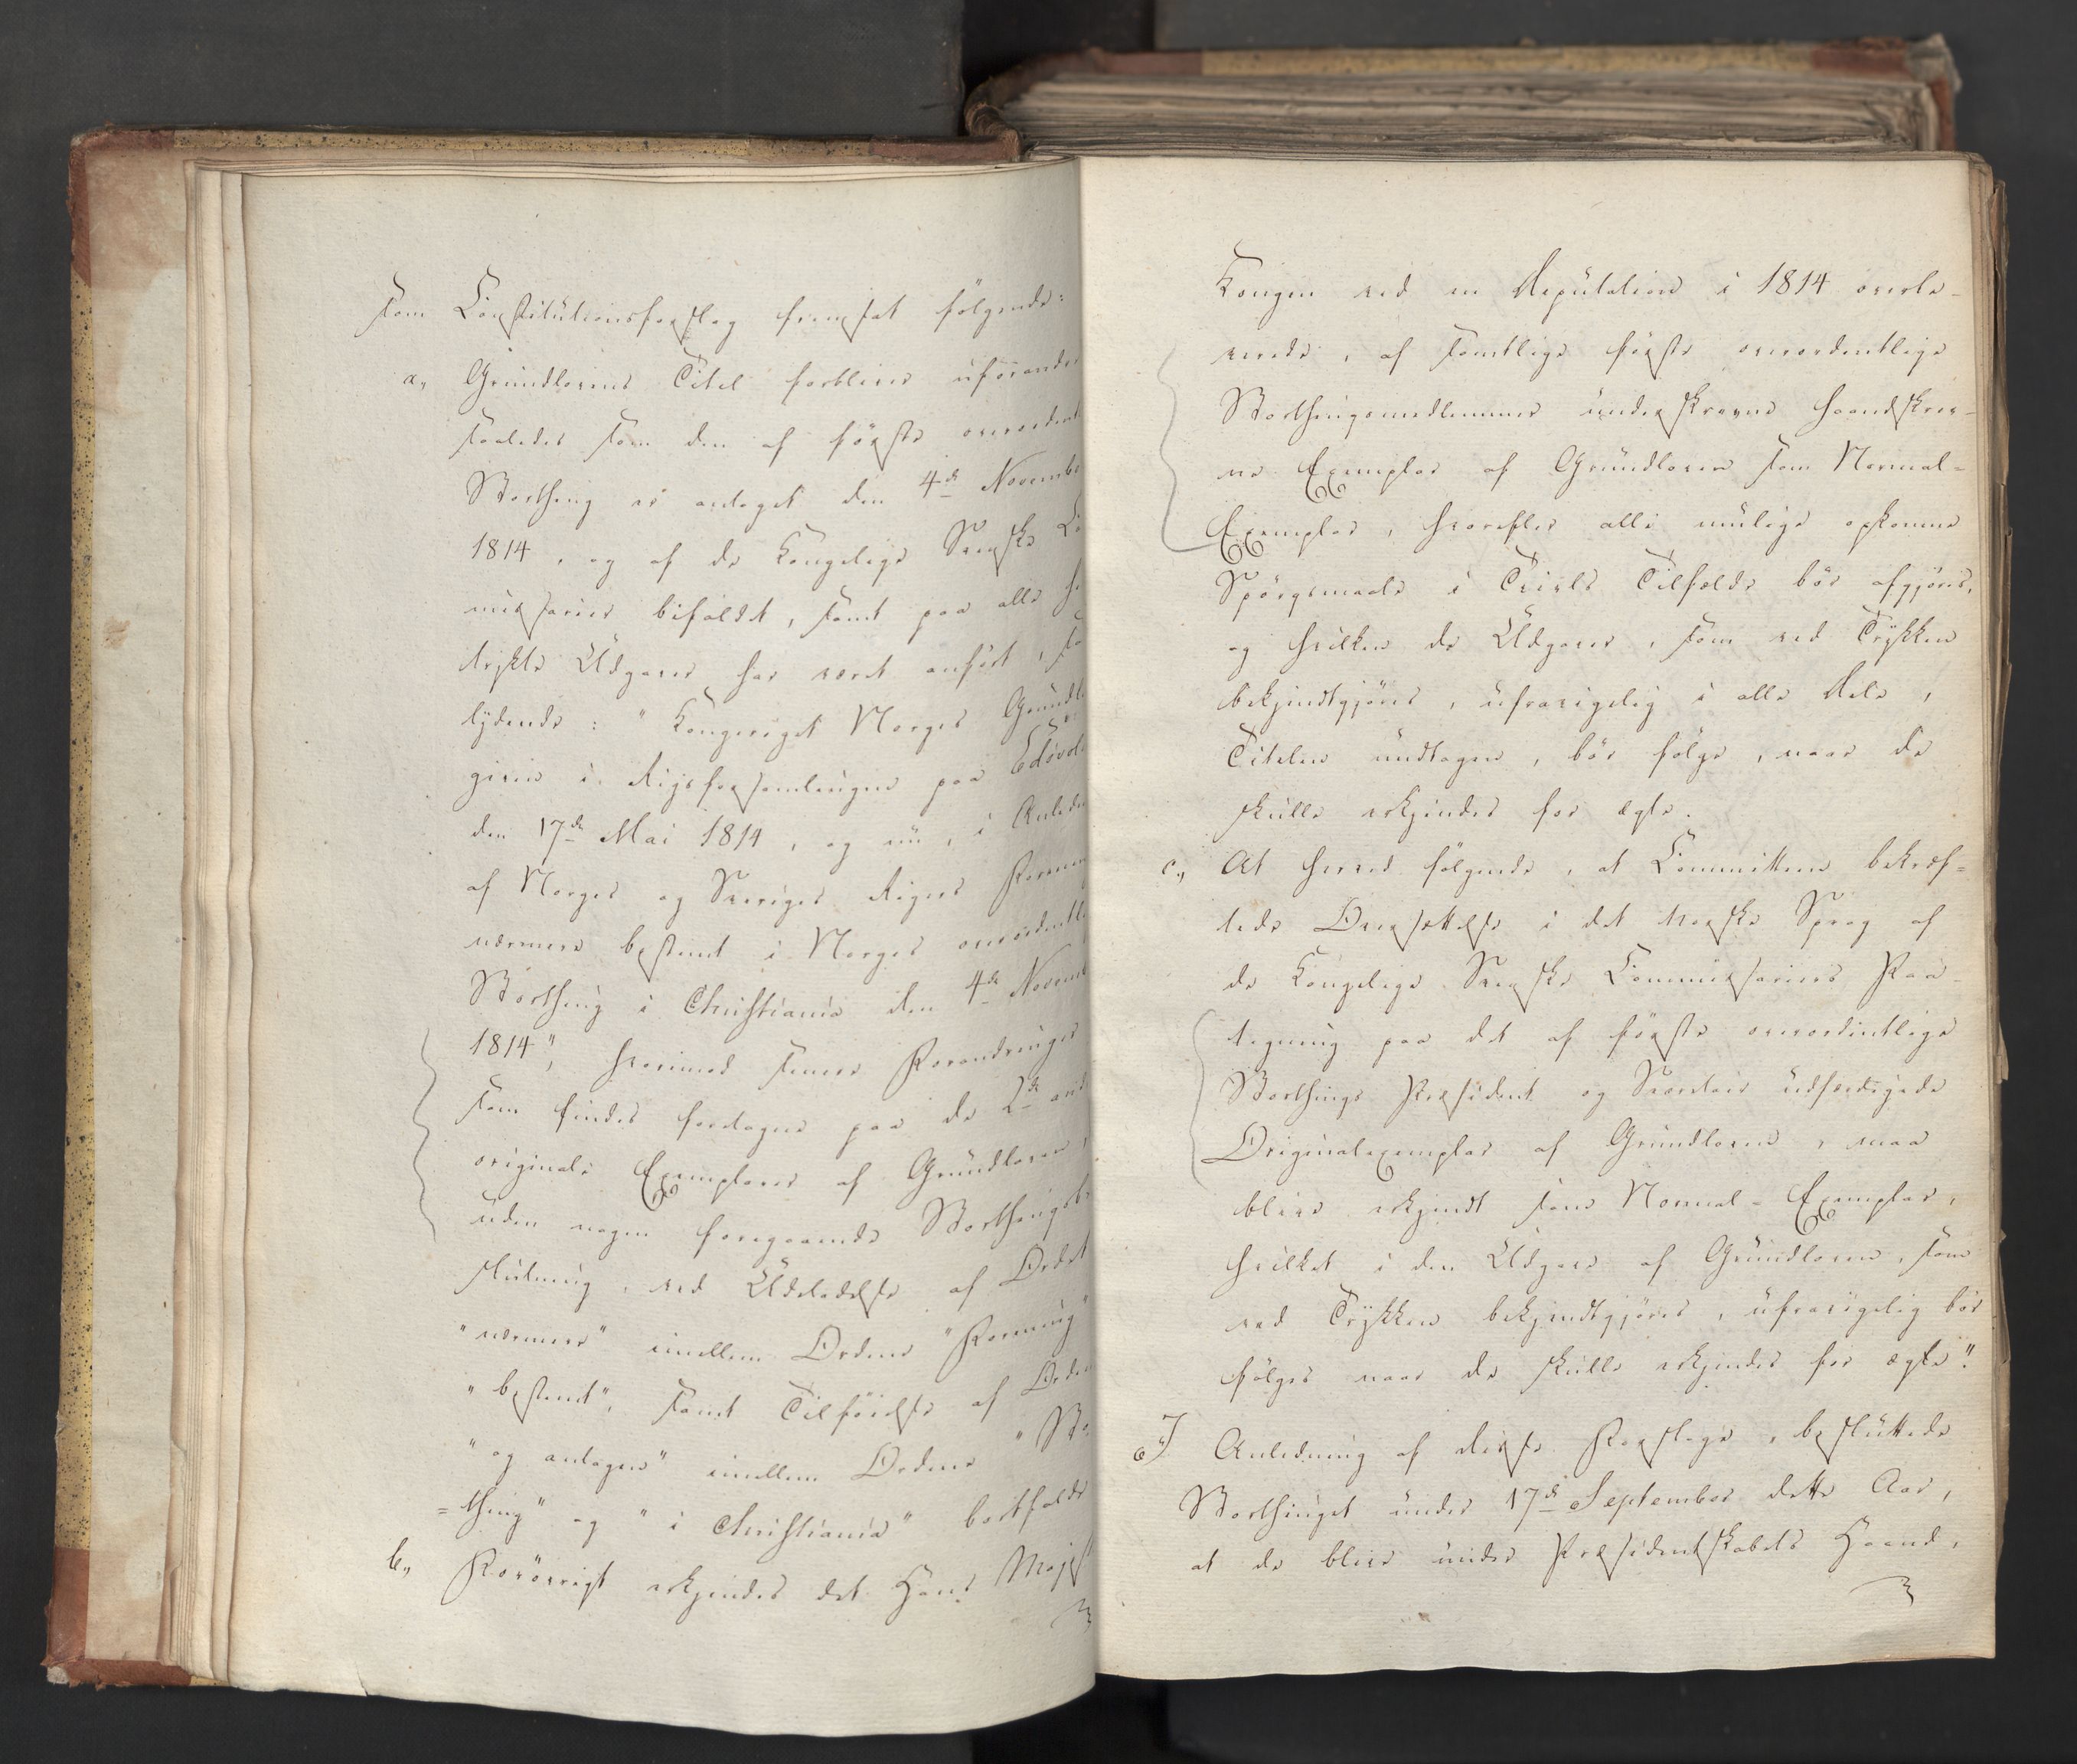 som Constitutionsforslag fremsat følgende:
a., Grundlovens Titel forbliver uforandre
saaledes som den af første overordent
Storthing er antaget den 4de Novembe
1814, og af de Kongelige Svenske Co
missarier bifaldt, samt paa alle h
trykte Udgaver har været anført, sa
lydende: "Kongeriget Norges Grundl
given i Rigsforsamlingen paa Edsvol
den 17de Mai 1814, og nu, i Anledn
af Norges og Sveriges Rigers Forenin
nærmere bestemt i Norges overordentli
Storthing i Christiania den 4de Novemb
1814", hvorimod senere Forandringer
som findes foretagne paa de 2de andr
originale Exemplarer af Grundloven,
uden nogen foregaaende Storthingsbe
slutning, ved Udeladelse af Ordet
"nærmere" imellem Ordene "Forening"
"bestemt", samt Tilføielse af Orden
"og antagen" imellem Ordene "Stor
=thing" og "i Christiania" bortfalde
b., Forøvrigt erkjendes det Hans Majest
Kongen ved en Deputation i 1814 overle-
verede, af samtlige første overordentlige
Storthingsmedlemmer underskrevne haandskrev-
ne Exemplar af Grundloven som Normal-
Exemplar, hvorefter alle mulige opkomne
Spørgsmaale i Tvivls Tilfælde bør afgjøres,
og hvilken de Udgaver, som ved Trykken
bekjendtgjøres, ufravigelig i alle Dele,
Titelen undtagen, bør følge, naar de
skulle erkjendes for ægte.
c., At herved følgende, at Committeen bekræf=
tede Oversættelse i det norske Sprog af
de Kongelige Svenske Commissariers Paa
tegning paa det af første overordentlige
Storthings Præsident og Secretair udfærdigede
Originalexemplar af Grundloven, maa
blive erkjendt som Normal-Exemplar,
hvilket i den Udgave af Grundloven, som
ved Trykken bekjendtgjøres, ufravigelig bør
følges naar de skulle erkjendes for ægte".
I Anledning af disse Forslage, besluttede
Storthinget under 17de September dette Aar,
at de blive under Præsidentskabets Haand,